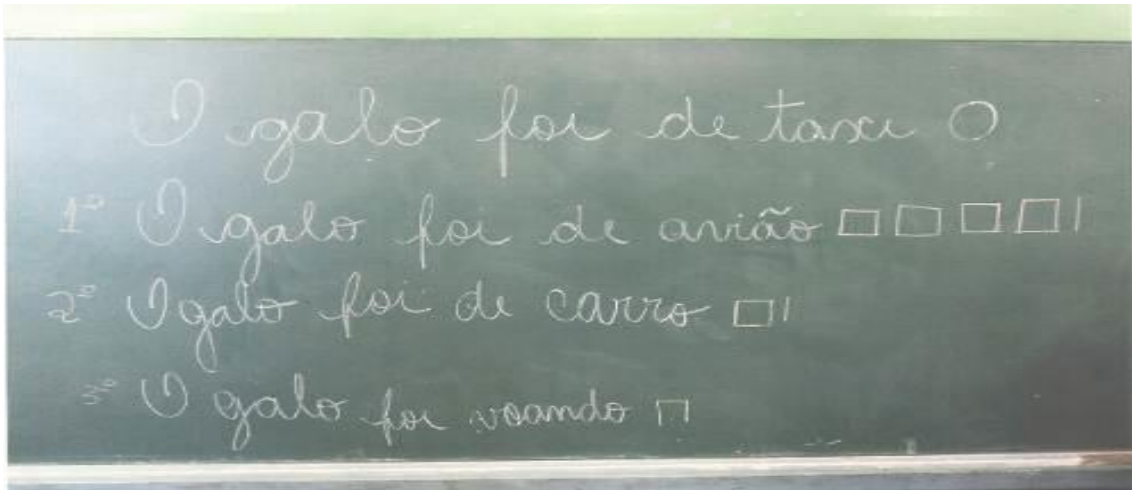 O galo foi de taxi O
1º O galo foi de avião □ □ □ □ |
2º O galo foi de carro □ ||
3º O galo foi voando ⊓